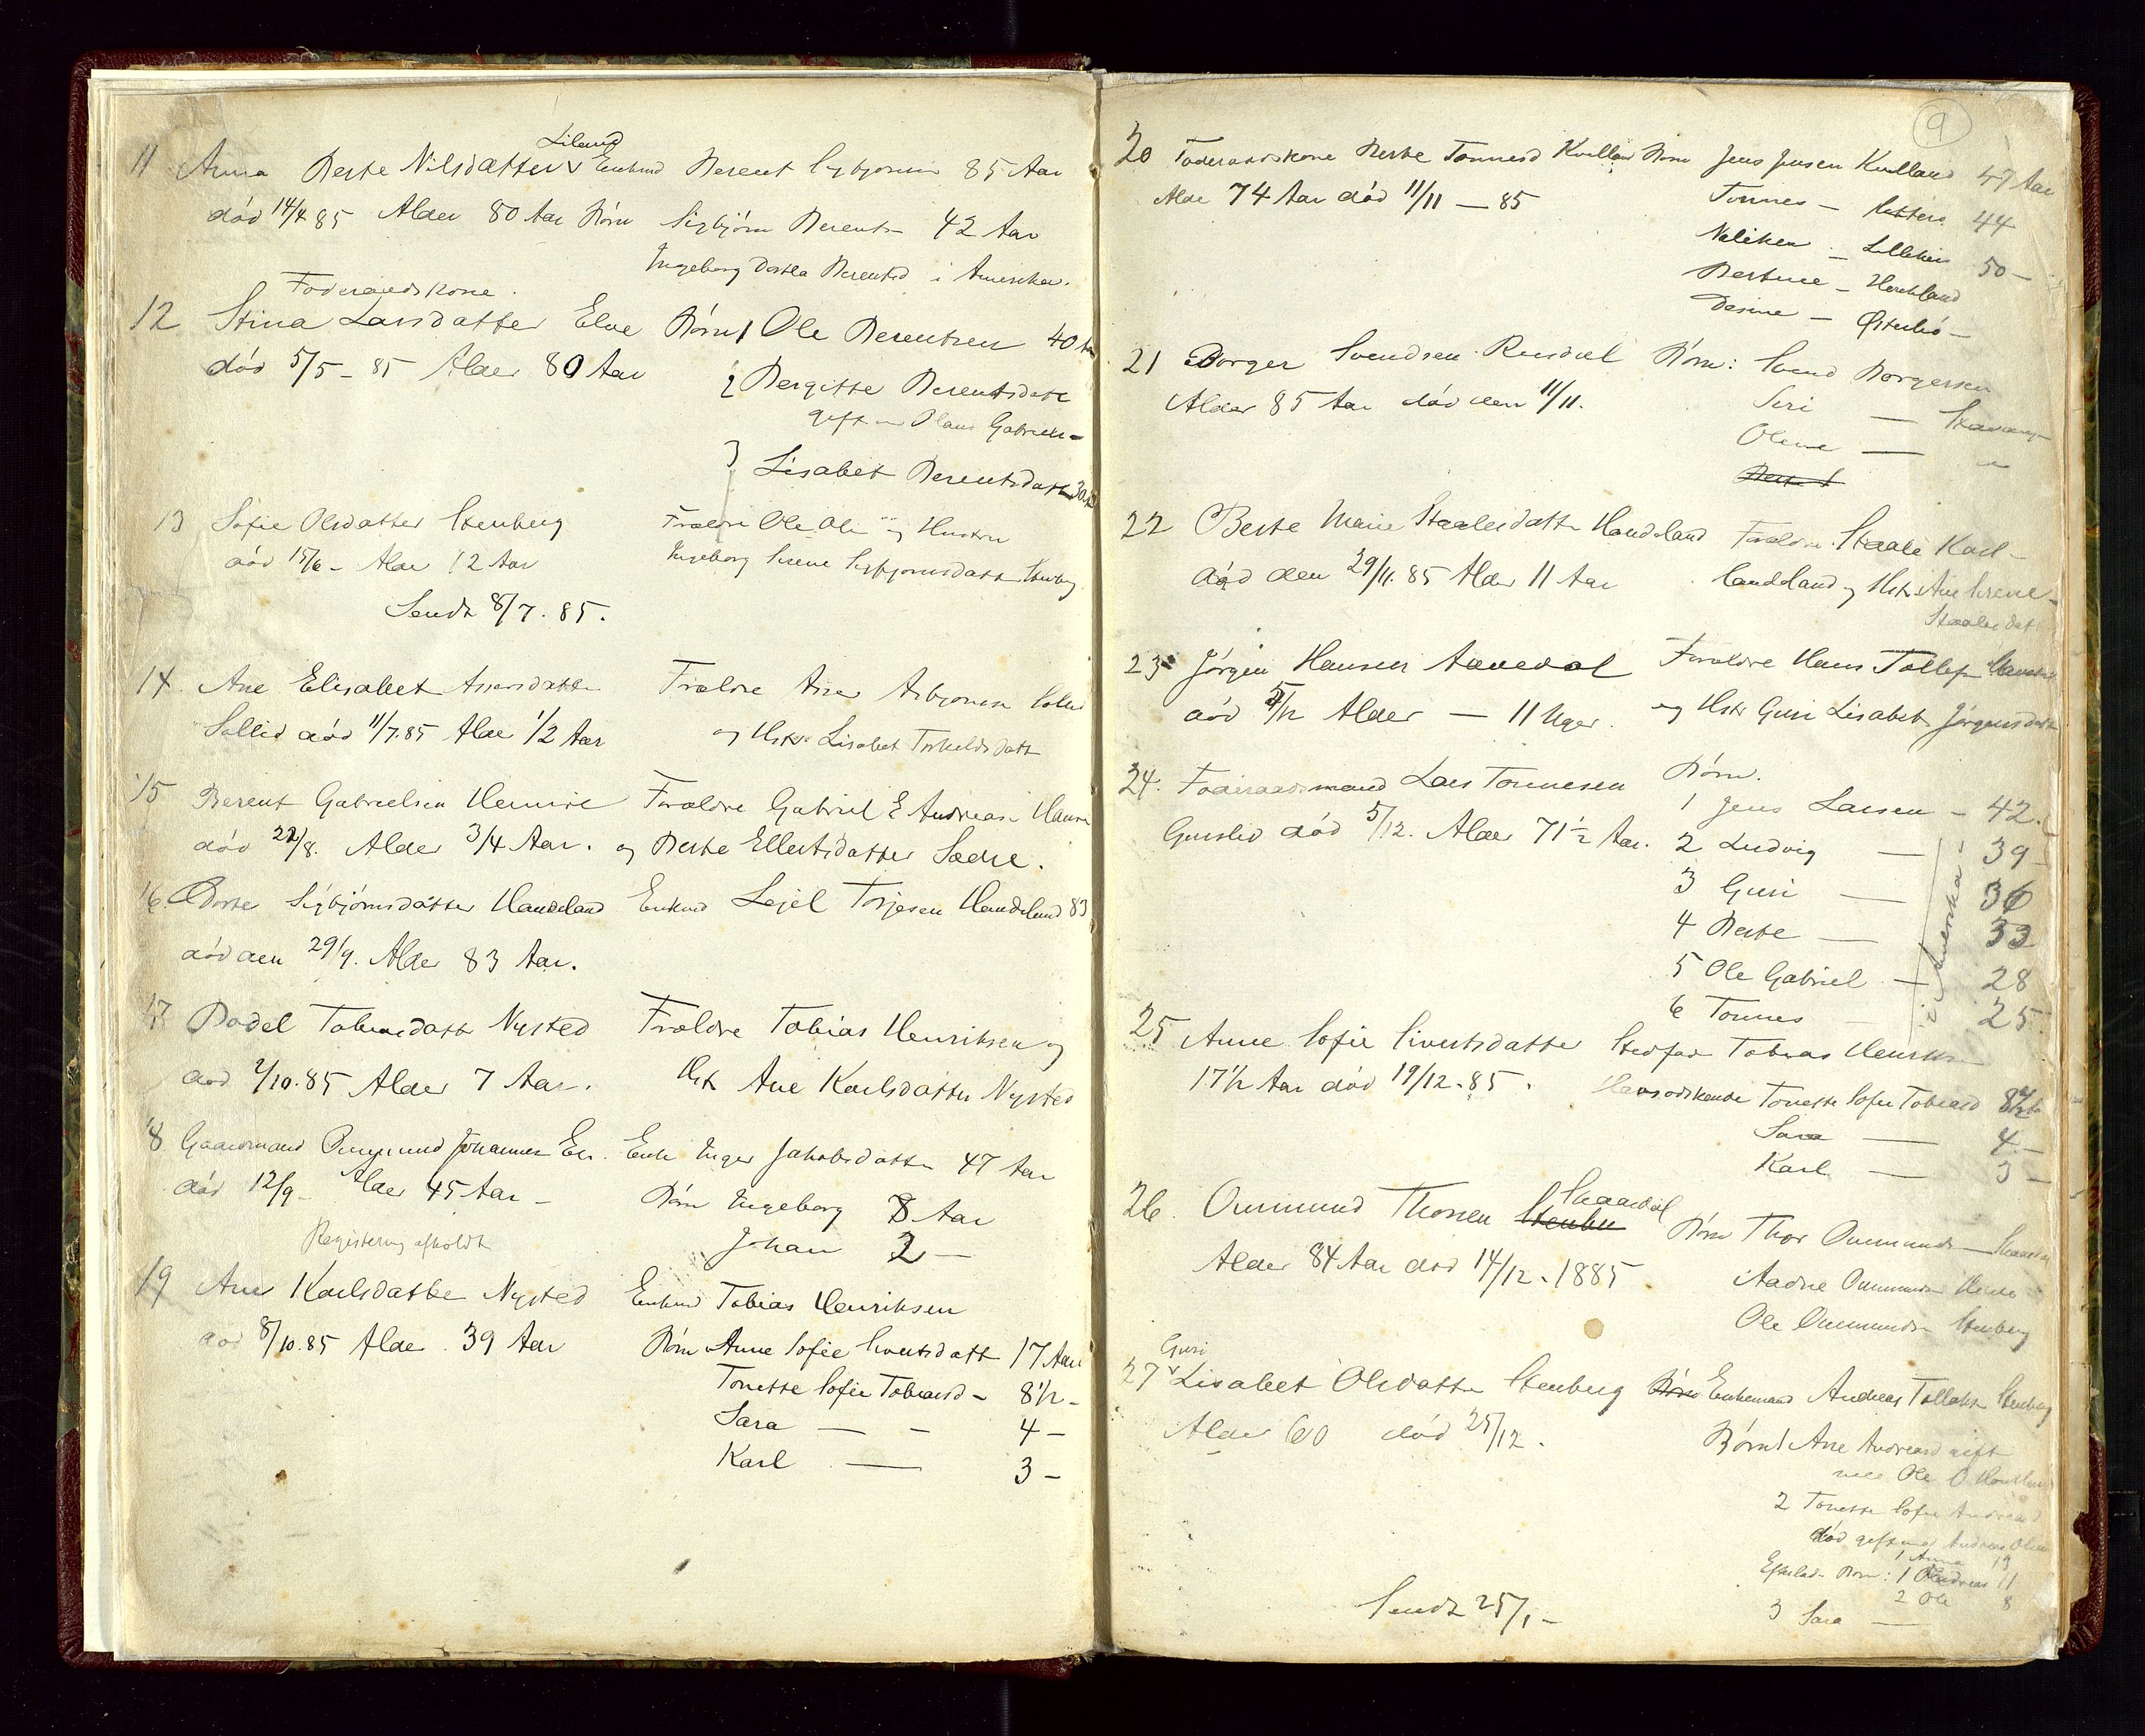 Liland
11 Anna Berte Nilsdatter v Enkmd Berent Sigbjørnsen 85 Aar
død 14/4 85 Alder 80 Aar Børn Sigbjørn Berents 42 Aar
Ingeborg Dortea Berentsd i Amerika.
Føderaadskone.
12 Stina Larsdatter Elve Børn 1 Ole Berentsen 40
død 5/5 - 85 Alder 80 Aar 2 Bergitte Berentsdatt
gift m Olaus Gabriels-
3 Lisabet Berentsdatt 30
13 Sofie Olsdatter Stenberg Forældre Ole Ols og Hustru
død 15/6 - Alder 12 Aar Ingeborg Serene Sigbjørnsdatt Stenberg
Sendt 8/7. 85.
14. Ane Elisabet Assersdatter Forældre Asser Asbjørnsen Sollid
Sollid død 11/7.85 Alder 1/2 Aar og Hstr. Lisabet Torkeldsdatt
15 Berent Gabrielsen Forældre Gabriel E Andreasen
død 22/8. Alder 3/4 Aar. og Berte Ellertsdatter Sædre.
16 Dorte Sigbjørnsdatter Handeland Enkmd Lejel Torjesen Handeland 83
død den 29/9. Alder 83 Aar.
17 Bodel Tobiasdatt Nysted Forældre Tobias Henriksen og
død 2/10.85 Alder 7 Aar. Hstr Ane Karlsdatter Nysted
18 Gaardmand Ommund Johannes Eie. Enke Inger Jakobsdatter 47 Aar
død 12/9 - Alder 45 Aar - Børn Ingeborg 8 Aar
Registering afholdt Johan 2 —
19 Ane Karlsdatter Nysted Enkmd Tobias Henriksen
død 8/10.85 Alder 39 Aar Børn Anne Sofie Sivertsdatt 17 Aar
Tonette Sofie Tobiasd - 8 1/2 -
Sara — - 4 -
Karl — 3 -
9
20 Føderaadskone Berte Tønnesd Kvelland Børn Jens Jensen Kvelland 47 Aar
Alder 74 Aar død 11/11 — 85 Tønnes — 44
— 50 -
Bertine —
— Østebø -
21 Borger Svendsen Rusdal Børn: Svend Borgersen
Alder 85 Aar død den 11/11. Siri — Stavanger
Oline — "
22 Berte Marie Staalesdatter Handeland Forældre Staale Karl-
død den 29/11. 85 Alder 11 Aar Handeland og Hstr Ane Serene
Staalesdat
23 Jørgen Hansen Aavedal Forældre Hans Tollefs
død 5/12 Alder — 11 Uger. og Hstr Guri Lisabet Jørgensdatt
24. Føderaadsmand Lars Tønnesen Børn.
1 Jens Larsen - 42.
død 5/12. Alder 71 1/2 Aar. 2 Ludvig — 39 -
3 Guri — 36
4 Berte — 33
5 Ole Gabriel — 28
6 Tønnes 25
i Amerika
25 Anne Sofie Sivertsdatter Stedfar Tobias Henriksen
17 1/2 Aar død 19/12.85. Halvsødskende Tonette Sofie Tobiasd 8 1/2
Sara — 4 -
Karl — 3 -
Skaardal
26. Ommund Thorsen Stenbu Børn Thor Ommunds —
Alder 84 Aar død 14/12. 1885. Aadne Ommunds
Ole Ommunds Stenberg
Guri
27 v Lisabet Olsdatter Stenberg Børn Enkemand Andreas Tollaks Stenberg
Alder 60 død 25/12. Børn 1 Ane Andreasd gift
med Ole O
2 Tonette Sofie Andreasd
død gift med Andreas Olsen
1 Anna 13
Efterlad. Børn: 1 Andreas 11
2 Ole 8
Sendt 25/1 - 3 Sara —